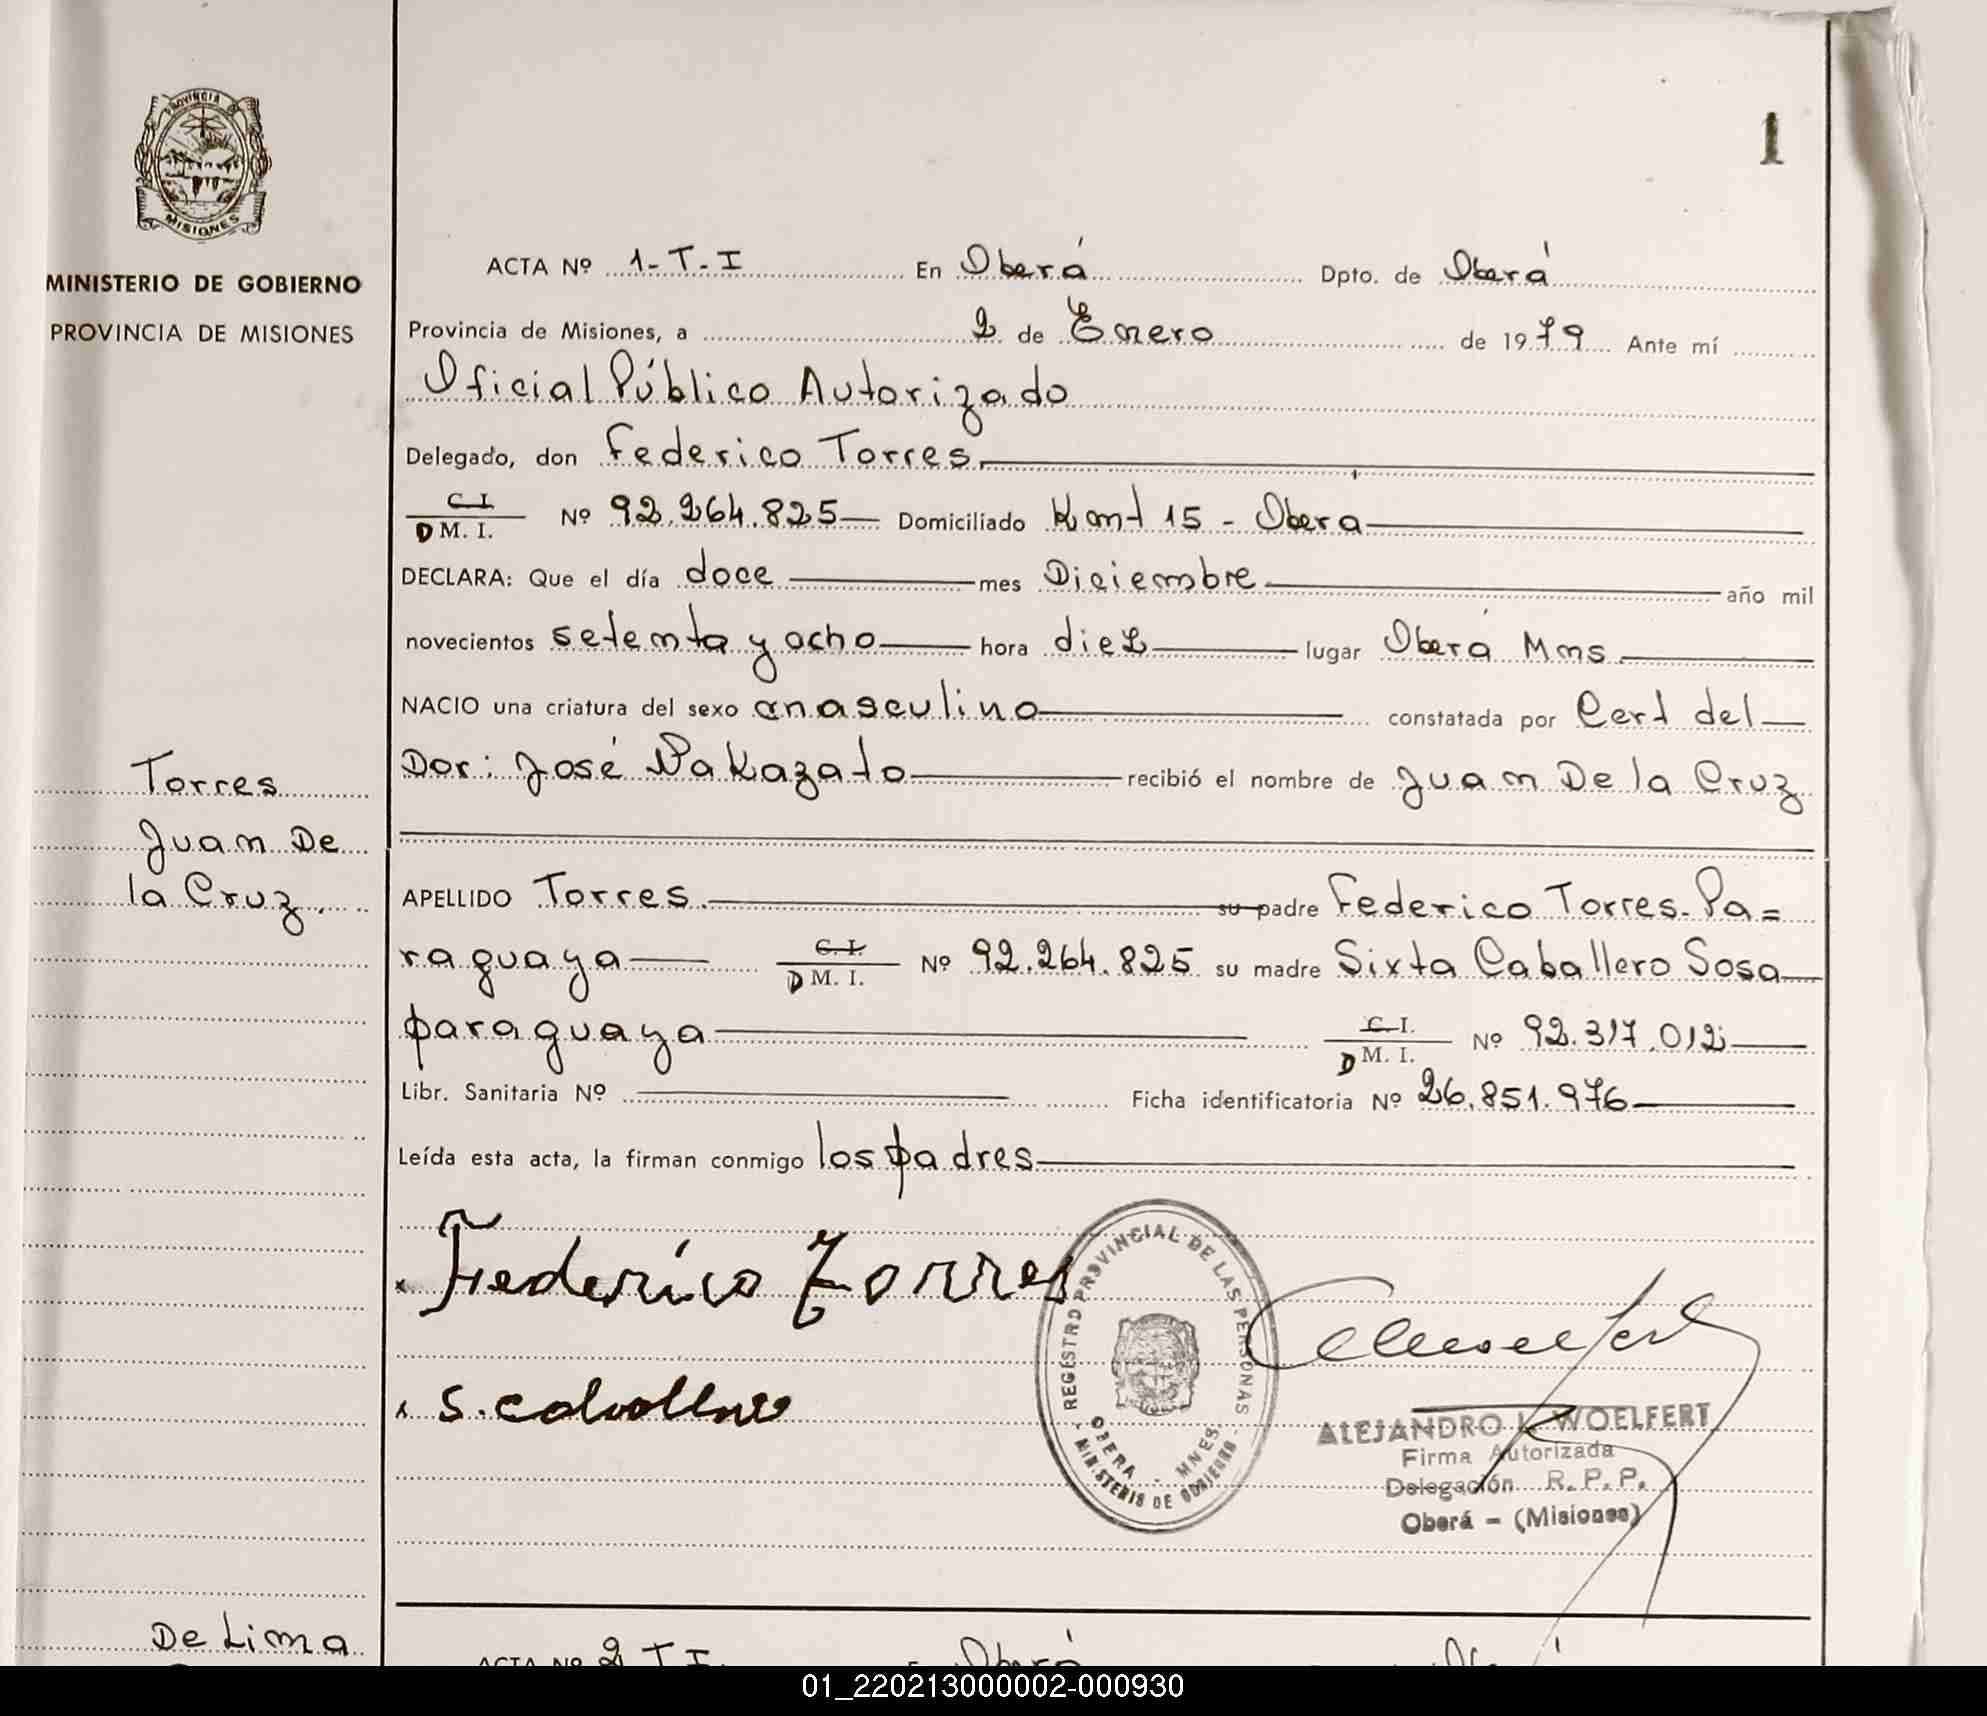 PROVINCIA DE
MISIONES
MINISTERIO DE GOBIERNO
PROVINCIA DE MISIONES
1
ACTA Nº 1-T-I En Oberá Dpto. de Oberá
Provincia de Misiones, a 2 de Enero de 1979 Ante mí
Oficial Público Autorizado
Delegado, don Federico Torres
C. I.
D M. I. Nº 92.264.825 Domiciliado Kmt 15 - Obera
DECLARA: Que el día doce mes Diciembre año mil
novecientos setenta y ocho hora diez lugar Oberá Mns
NACIO una criatura del sexo masculino constatada por Cert del
Dor: José Nakazato recibió el nombre de Juan De la Cruz
Torres
Juan De
la Cruz.
APELLIDO Torres. su padre Federico Torres. Pa=
raguaya C. I.
D M. I. Nº 92.264.825 su madre Sixta Caballero Sosa
paraguaya C. I.
D M. I. Nº 92.317.012
Libr. Sanitaria Nº Ficha identificatoria Nº 26.851.976
Leída esta acta, la firman conmigo los padres
x Federico Torres
x S. caballero
REGISTRO PROVINCIAL DE LAS PERSONAS
OBERA - MNES.
MINISTERIO DE GOBIERNO
ALEJANDRO L. WOELFERT
Firma Autorizada
Delegación R. P. P.
Oberá - (Misiones)
De Lima
ACTA Nº 2 T I. En Oberá
01_220213000002-000930